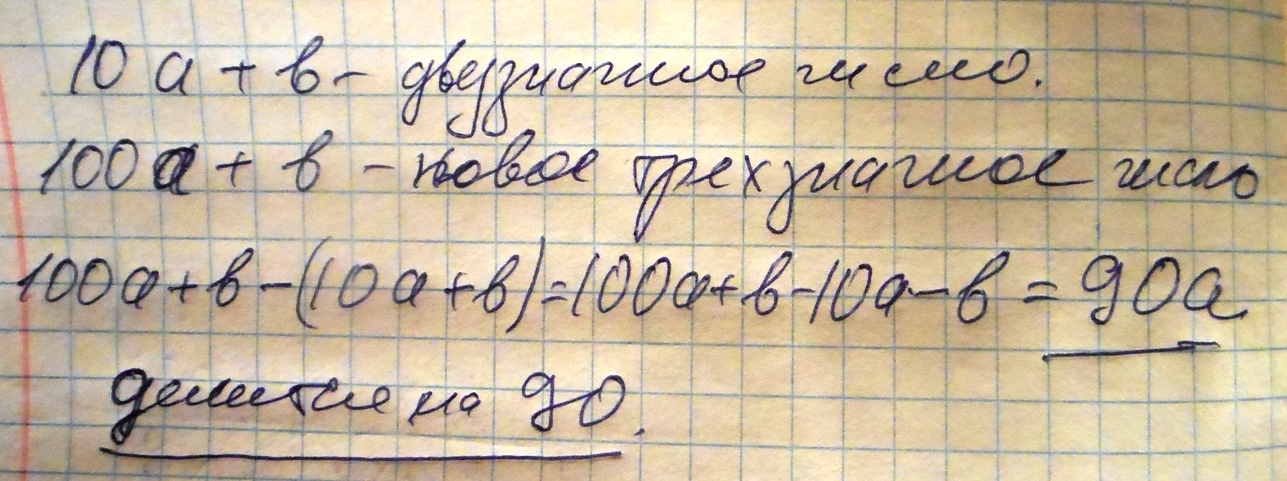 10а + в - двузначное число.
100а + в - новое трехзначное число
100а+в-(10а+в)=100а+в-10а-в = 90а
делится на 90.